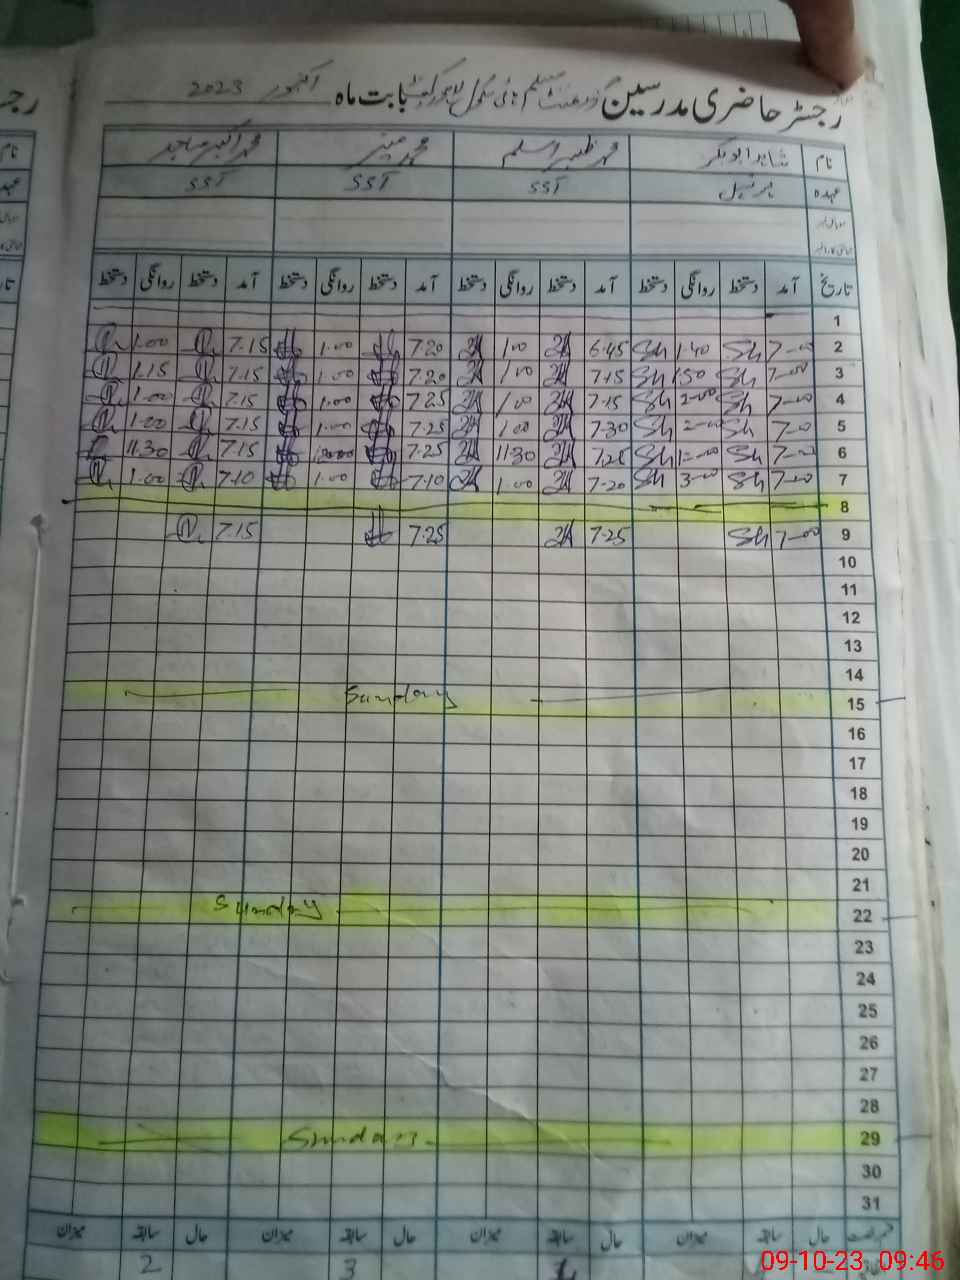 رجسٹر حاضری مدرسین گورنمنٹ مسلم ہائی سکول بابت ماہ اکتوبر 2023
نام شاہد ابوبکر محمد ظہیر اسلم محمد منیر محمد اکبر ساجد
عہدہ پرنسپل SST SST SST
موبائل نمبر
شناختی کارڈ نمبر
تاریخ آمد دستخط روانگی دستخط آمد دستخط روانگی دستخط آمد دستخط روانگی دستخط آمد دستخط روانگی دستخط
1
2 7-00 Sh 1.40 Sh 6.45 1.00 7.20 1.00 7.15 1.00
3 7-00 Sh 1.50 Sh 7.15 1.00 7.20 1.00 7.15 1.15
4 7-00 Sh 2-00 Sh 7.15 1.00 7.25 1.00 7.15 1.00
5 7-00 Sh 2-00 Sh 7.30 1.00 7.25 1.00 7.15 1.00
6 7-00 Sh 12-00 Sh 7.25 11.30 7.25 7.15 11.30
7 7-00 Sh 3-00 Sh 7.20 1.00 7.10 1.00 7.10 1.00
8
9 7-00 Sh 7.25 7.25 7.15
10
11
12
13
14
15 Sunday
16
17
18
19
20
21
22 Sunday
23
24
25
26
27
28
29 Sunday
30
31
حال سابقہ میزان حال سابقہ میزان حال سابقہ میزان حال سابقہ میزان
1 3 2
09-10-23 09:46